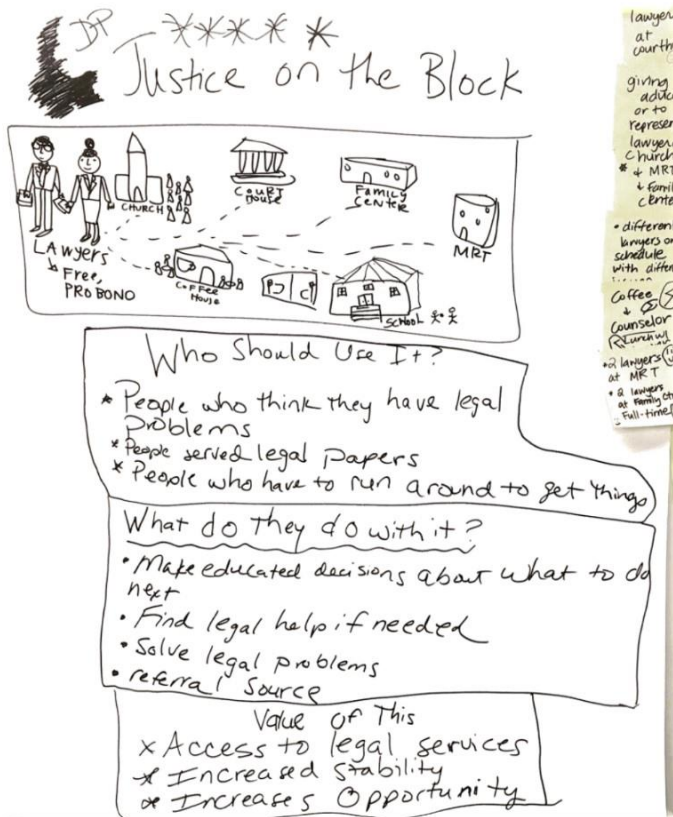 DP
Justice on the Block
CHURCH
COURT
HOUSE
FAMILY
CENTER
MRT
LAWYERS
Free,
PRO BONO
COFFEE
HOUSE
SCHOOL
Who Should Use It?
* People who think they have legal
problems
* People served legal papers
* People who have to run around to get things
What do they do with it?
• Make educated decisions about what to do
next
• Find legal help if needed
• Solve legal problems
• referral source
Value of This
x Access to legal services
* Increased stability
* Increases Opportunity
at
giving
or to
* & MRT
lawyers on
schedule
Coffee
Counselor
• 2 lawyers
at MRT
• 2 lawyers
at Family
Full-time